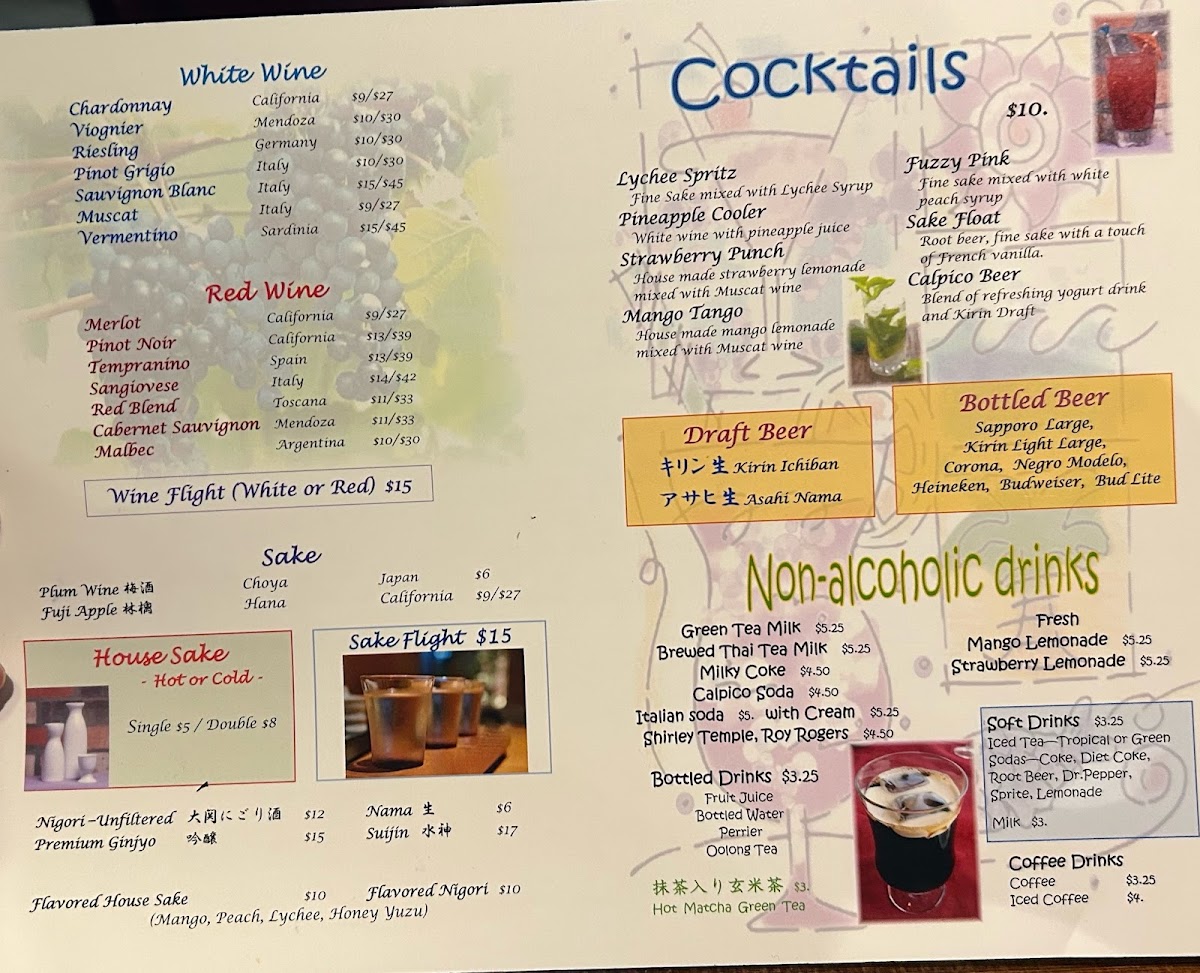 White Wine
Chardonnay California $9/$27
Viognier Mendoza $10/$30
Riesling Germany $10/$30
Pinot Grigio Italy $10/$30
Sauvignon Blanc Italy $15/$45
Muscat Italy $9/$27
Vermentino Sardinia $15/$45
Red Wine
Merlot California $9/$27
Pinot Noir California $13/$39
Tempranino Spain $13/$39
Sangiovese Italy $14/$42
Red Blend Toscana $11/$33
Cabernet Sauvignon Mendoza $11/$33
Malbec Argentina $10/$30
Wine Flight (White or Red) $15
Sake
Plum Wine 梅酒 Choya Japan $6
Fuji Apple 林檎 Hana California $9/$27
House Sake
- Hot or Cold -
Single $5 / Double $8
Sake Flight $15
Nigori-Unfiltered 大関にごり酒 $12
Premium Ginjyo 吟醸 $15
Nama 生 $6
Suijin 水神 $17
Flavored House Sake $10
Flavored Nigori $10
(Mango, Peach, Lychee, Honey Yuzu)
Cocktails
$10.
Lychee Spritz
Fine Sake mixed with Lychee Syrup
Pineapple Cooler
White wine with pineapple juice
Strawberry Punch
House made strawberry lemonade
mixed with Muscat wine
Mango Tango
House made mango lemonade
mixed with Muscat wine
Fuzzy Pink
Fine sake mixed with white
peach syrup
Sake Float
Root beer, fine sake with a touch
of French vanilla.
Calpico Beer
Blend of refreshing yogurt drink
and Kirin Draft
Draft Beer
キリン生 Kirin Ichiban
アサヒ生 Asahi Nama
Bottled Beer
Sapporo Large,
Kirin Light Large,
Corona, Negro Modelo,
Heineken, Budweiser, Bud Lite
Non-alcoholic drinks
Green Tea Milk $5.25
Brewed Thai Tea Milk $5.25
Milky Coke $4.50
Calpico Soda $4.50
Italian soda $5. with Cream $5.25
Shirley Temple, Roy Rogers $4.50
Bottled Drinks $3.25
Fruit Juice
Bottled Water
Perrier
Oolong Tea
抹茶入り玄米茶 $3.
Hot Matcha Green Tea
Fresh
Mango Lemonade $5.25
Strawberry Lemonade $5.25
Soft Drinks $3.25
Iced Tea—Tropical or Green
Sodas—Coke, Diet Coke,
Root Beer, Dr.Pepper,
Sprite, Lemonade
Milk $3.
Coffee Drinks
Coffee $3.25
Iced Coffee $4.